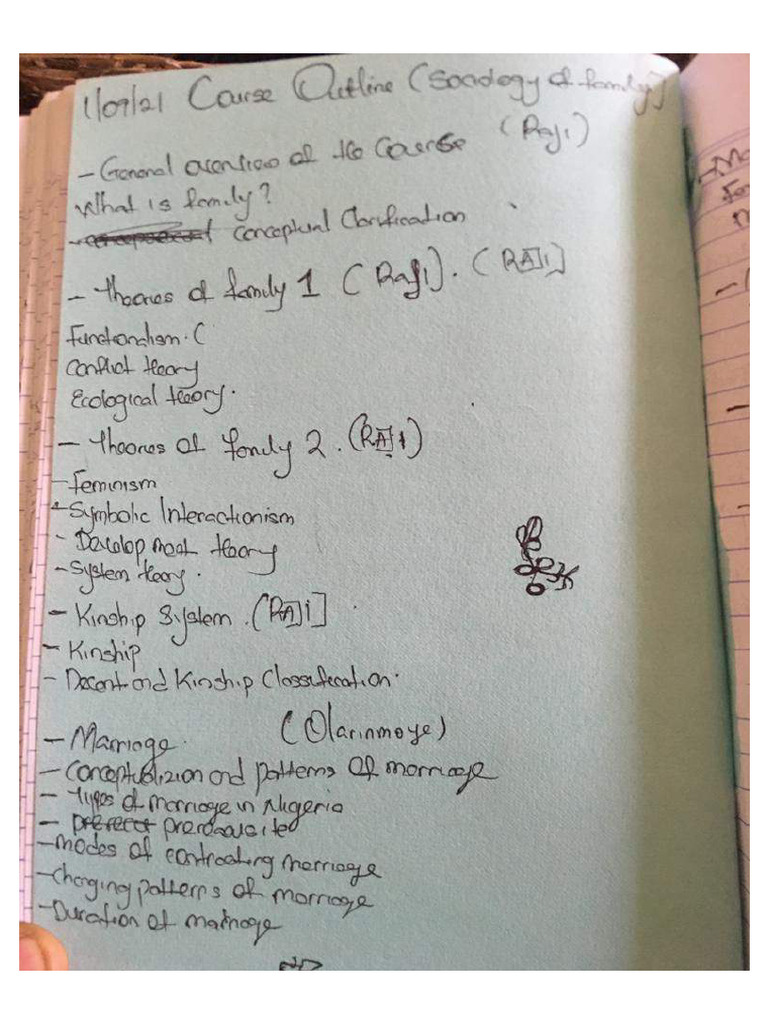 1/09/21 Course Outline (Sociology of family]
- General overview of the Course (Raji)
What is family?
- Conceptual Clarification
- Theories of family 1 (Raji). (RAJI]
Functionalism. (
Conflict theory
Ecological theory.
- Theories of family 2. (RAJI)
- Feminism
- Symbolic Interactionism
- Development theory
- System theory.
- Kinship System. (RAJI]
- Kinship
- Decent and Kinship Classification.
- Marriage. (Olarinmoye)
- Conceptulizion and patterns of marriage
- Types of marriage in Nigeria
- prerequisite
- modes of contracting marriage
- Changing patterns of marriage
- Duration of marriage